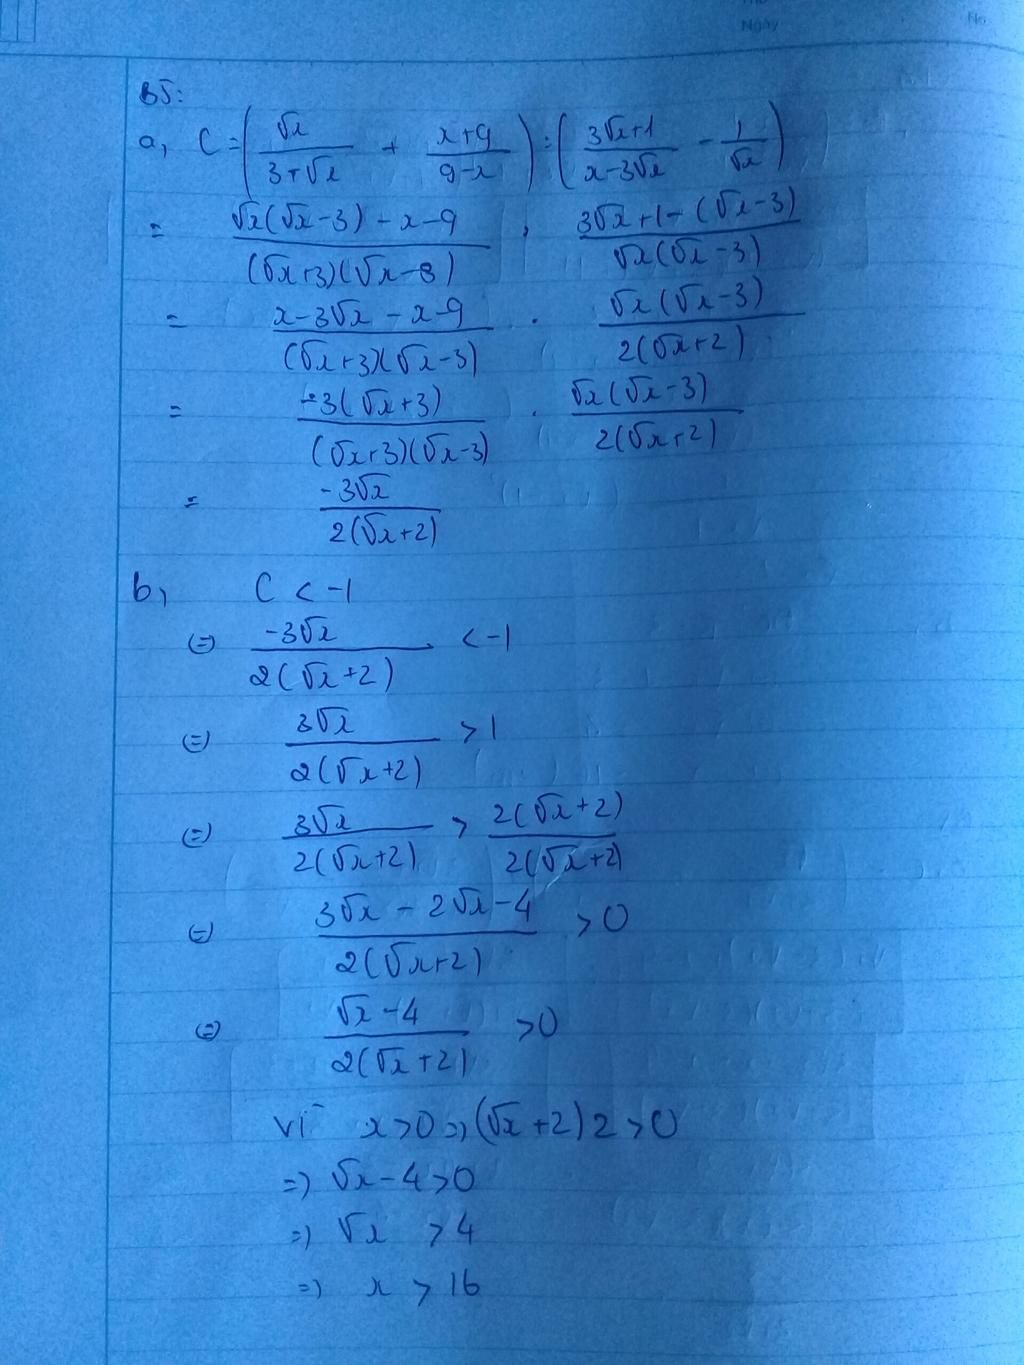 Ngày No.
B5:
a, C = (√x / (3+√x) + (x+9) / (9-x)) : ((3√x+1) / (x-3√x) - 1 / √x)
= (√x(√x-3) - x-9) / ((√x+3)(√x-3)) : (3√x+1-(√x-3)) / (√x(√x-3))
= (x-3√x - x-9) / ((√x+3)(√x-3)) . (√x(√x-3)) / (2(√x+2))
= (-3(√x+3)) / ((√x+3)(√x-3)) . (√x(√x-3)) / (2(√x+2))
= (-3√x) / (2(√x+2))
b, C < -1
(=) (-3√x) / (2(√x+2)) < -1
(=) (3√x) / (2(√x+2)) > 1
(=) (3√x) / (2(√x+2)) > (2(√x+2)) / (2(√x+2))
(=) (3√x - 2√x-4) / (2(√x+2)) > 0
(=) (√x-4) / (2(√x+2)) > 0
vì x>0 => (√x+2)2 > 0
=> √x-4>0
=> √x > 4
=> x > 16